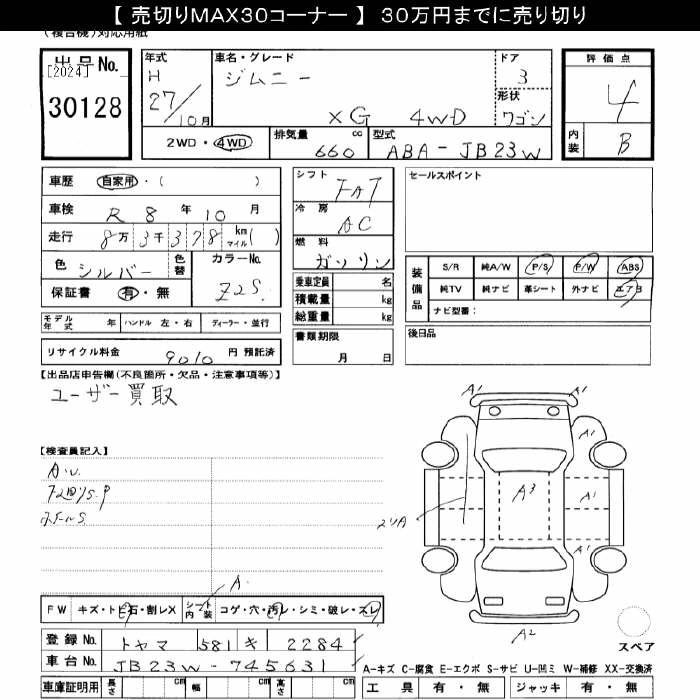 【 売切りMAX30コーナー 】 30万円までに売り切り
(複合機)対応用紙
出品No.
[2024]
30128
年式
H
27/10月
車名・グレード
ジムニー
XG 4WD
ドア
3
形状
ワゴン
評価点
4
内装
B
2WD・4WD
排気量
660 cc
型式
ABA-JB23W
車歴 自家用・( )
車検 R 8 年 10 月
走行 8万 3千 3 7 8 km マイル ( )
色 シルバー 色替
カラーNo.
Z2S
保証書 有・無
モデル年式 年 ハンドル 左・右 ディーラー・並行
リサイクル料金 9010 円 預託済
シフト
FAT
冷房
AC
燃料
ガソリン
乗車定員 名
積載量 kg
総重量 kg
書類期限
月 日
セールスポイント
装備品
S/R 純A/W P/S P/W ABS
純TV 純ナビ 革シート 外ナビ エアB
ナビ型番:
後日品
【出品店申告欄(不良箇所・欠品・注意事項等)】
ユーザー買取
【検査員記入】
A.U.
A1 A1
A1
A1
A3
A1
A1
A2
スペア
A.
FW キズ・トビ石・割レX シフト内装 コゲ・穴・汚レ・シミ・破レ・スレ
登録No. トヤマ 581 キ 2284
車台No. JB23W-745631
A-キズ C-腐食 E-エクボ S-サビ U-凹ミ W-補修 XX-交換済
車庫証明用 長さ cm 幅 cm 高さ cm
工具 有・無 ジャッキ 有・無